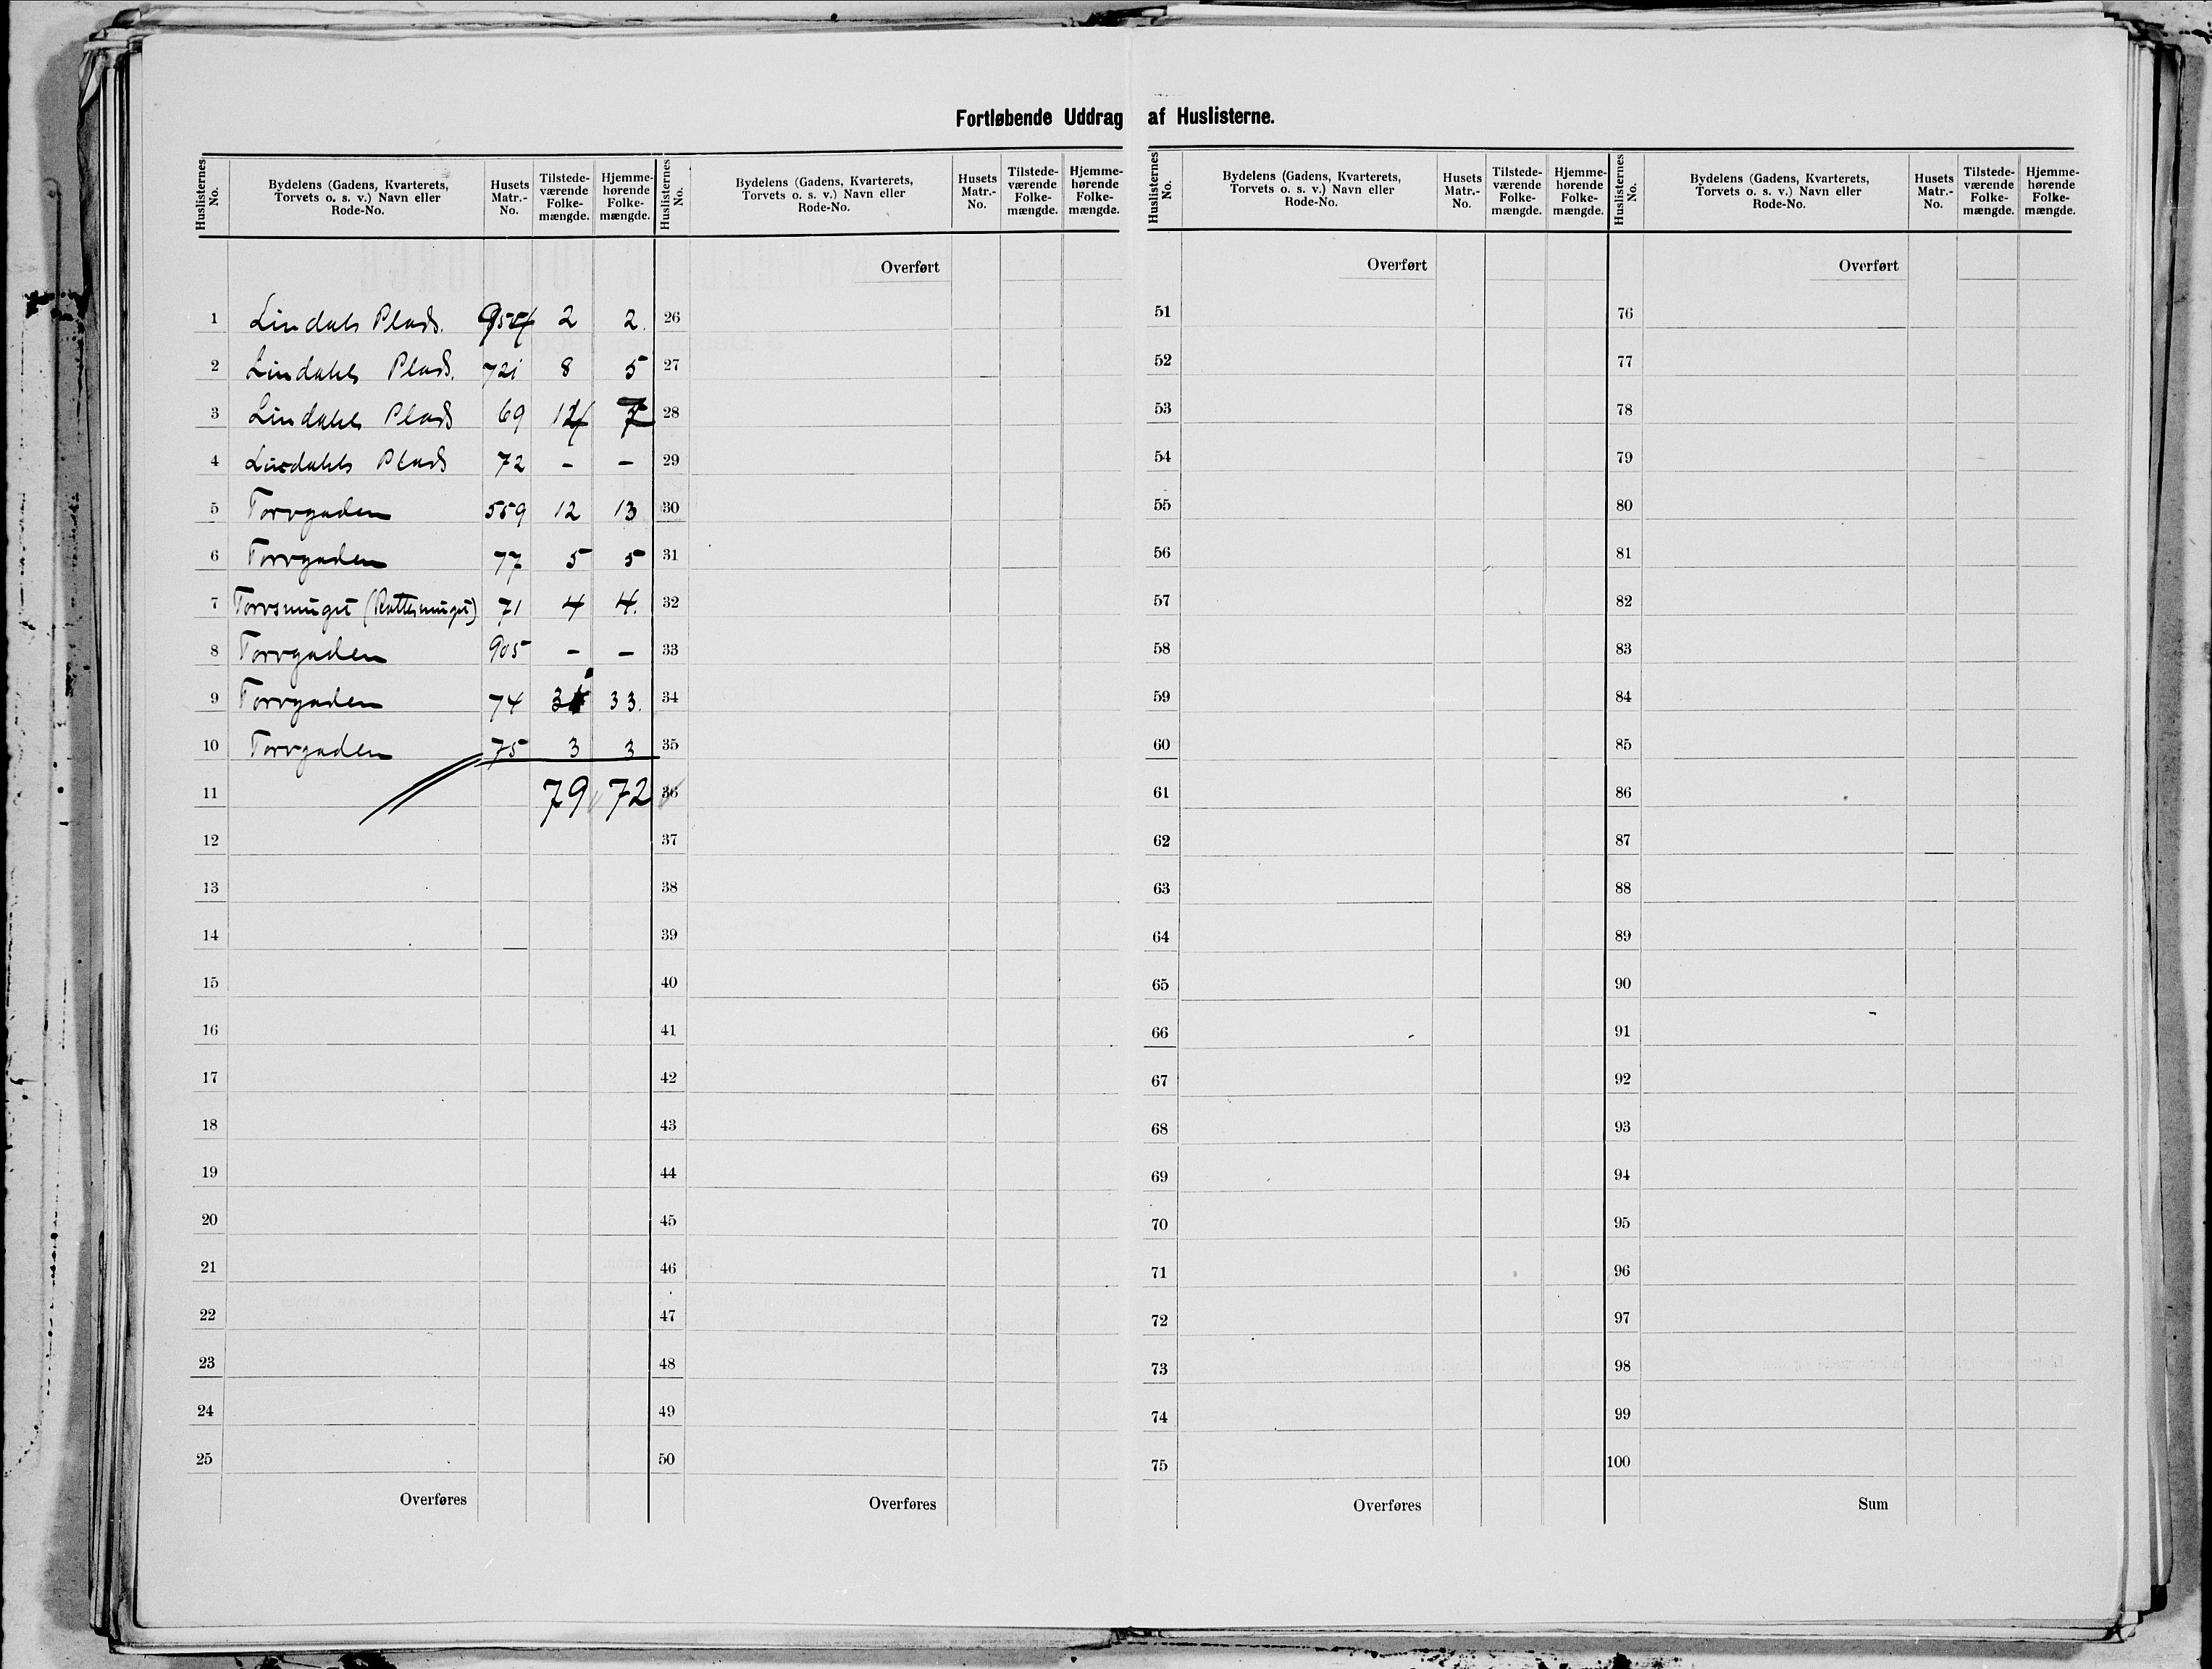 Fortløbende Uddrag af Huslisterne.
Huslisternes No. | Bydelens (Gadens, Kvarterets, Torvets o. s. v.) Navn eller Rode-No. | Husets Matr.-No. | Tilstedeværende Folkemængde. | Hjemmehørende Folkemængde.
1 Lindals Plads. 2 2.
2 Lindahls Plads. 721 8 5
3 Lindahls Plads 69
4 Lindahls Plads 72 – –
5 Torvgaden 559 12 13
6 Torvgaden 77 5 5
7 Torvsmuget (Rottesmuget) 71 4 4.
8 Torvgaden 905 – –
9 Torvgaden 74 33.
10 Torvgaden 75 3 3
11 79 72
12
13
14
15
16
17
18
19
20
21
22
23
24
25
Overføres
Huslisternes No. | Bydelens (Gadens, Kvarterets, Torvets o. s. v.) Navn eller Rode-No. | Husets Matr.-No. | Tilstedeværende Folkemængde. | Hjemmehørende Folkemængde.
Overført
26
27
28
29
30
31
32
33
34
35
36
37
38
39
40
41
42
43
44
45
46
47
48
49
50
Overføres
Huslisternes No. | Bydelens (Gadens, Kvarterets, Torvets o. s. v.) Navn eller Rode-No. | Husets Matr.-No. | Tilstedeværende Folkemængde. | Hjemmehørende Folkemængde.
Overført
51
52
53
54
55
56
57
58
59
60
61
62
63
64
65
66
67
68
69
70
71
72
73
74
75
Overføres
Huslisternes No. | Bydelens (Gadens, Kvarterets, Torvets o. s. v.) Navn eller Rode-No. | Husets Matr.-No. | Tilstedeværende Folkemængde. | Hjemmehørende Folkemængde.
Overført
76
77
78
79
80
81
82
83
84
85
86
87
88
89
90
91
92
93
94
95
96
97
98
99
100
Sum